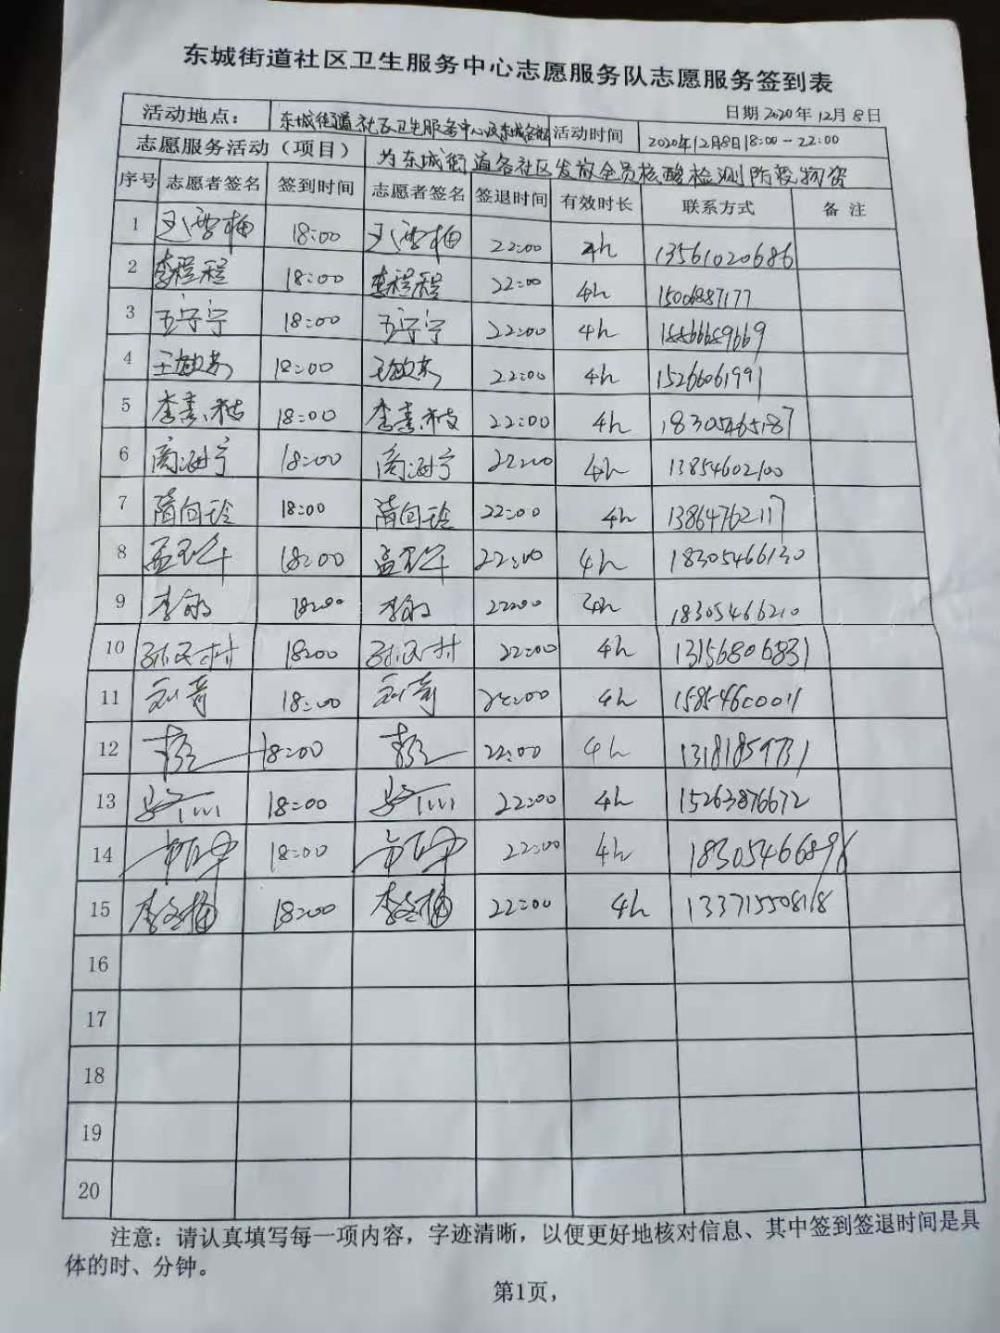 东城街道社区卫生服务中心志愿服务队志愿服务签到表
日期 2020年12月8日
活动地点： 东城街道社区卫生服务中心及东城各社区 活动时间 2020年12月8日18:00-22:00
志愿服务活动（项目） 为东城街道各社区发放全员核酸检测防疫物资
序号 志愿者签名 签到时间 志愿者签名 签退时间 有效时长 联系方式 备注
1 18:00 22:00 4h 13561020686
2 李程程 18:00 李程程 22:00 4h
3 18:00 22:00 4h
4 18:00 22:00 4h 15266061991
5 18:00 22:00 4h 18305465187
6 18:00 22:00 4h 13854602100
7 隋向玲 18:00 隋向玲 22:00 4h 13864762117
8 18:00 22:00 4h 18305466130
9 18:00 22:00 4h 18305466210
10 18:00 22:00 4h 13156806831
11 刘奇 18:00 刘奇 22:00 4h 15854600011
12 18:00 22:00 4h
13 18:00 22:00 4h 15263876672
14 18:00 22:00 4h 18305466896
15 18:00 22:00 4h
16
17
18
19
20
注意：请认真填写每一项内容，字迹清晰，以便更好地核对信息、其中签到签退时间是具
体的时、分钟。
第1页，